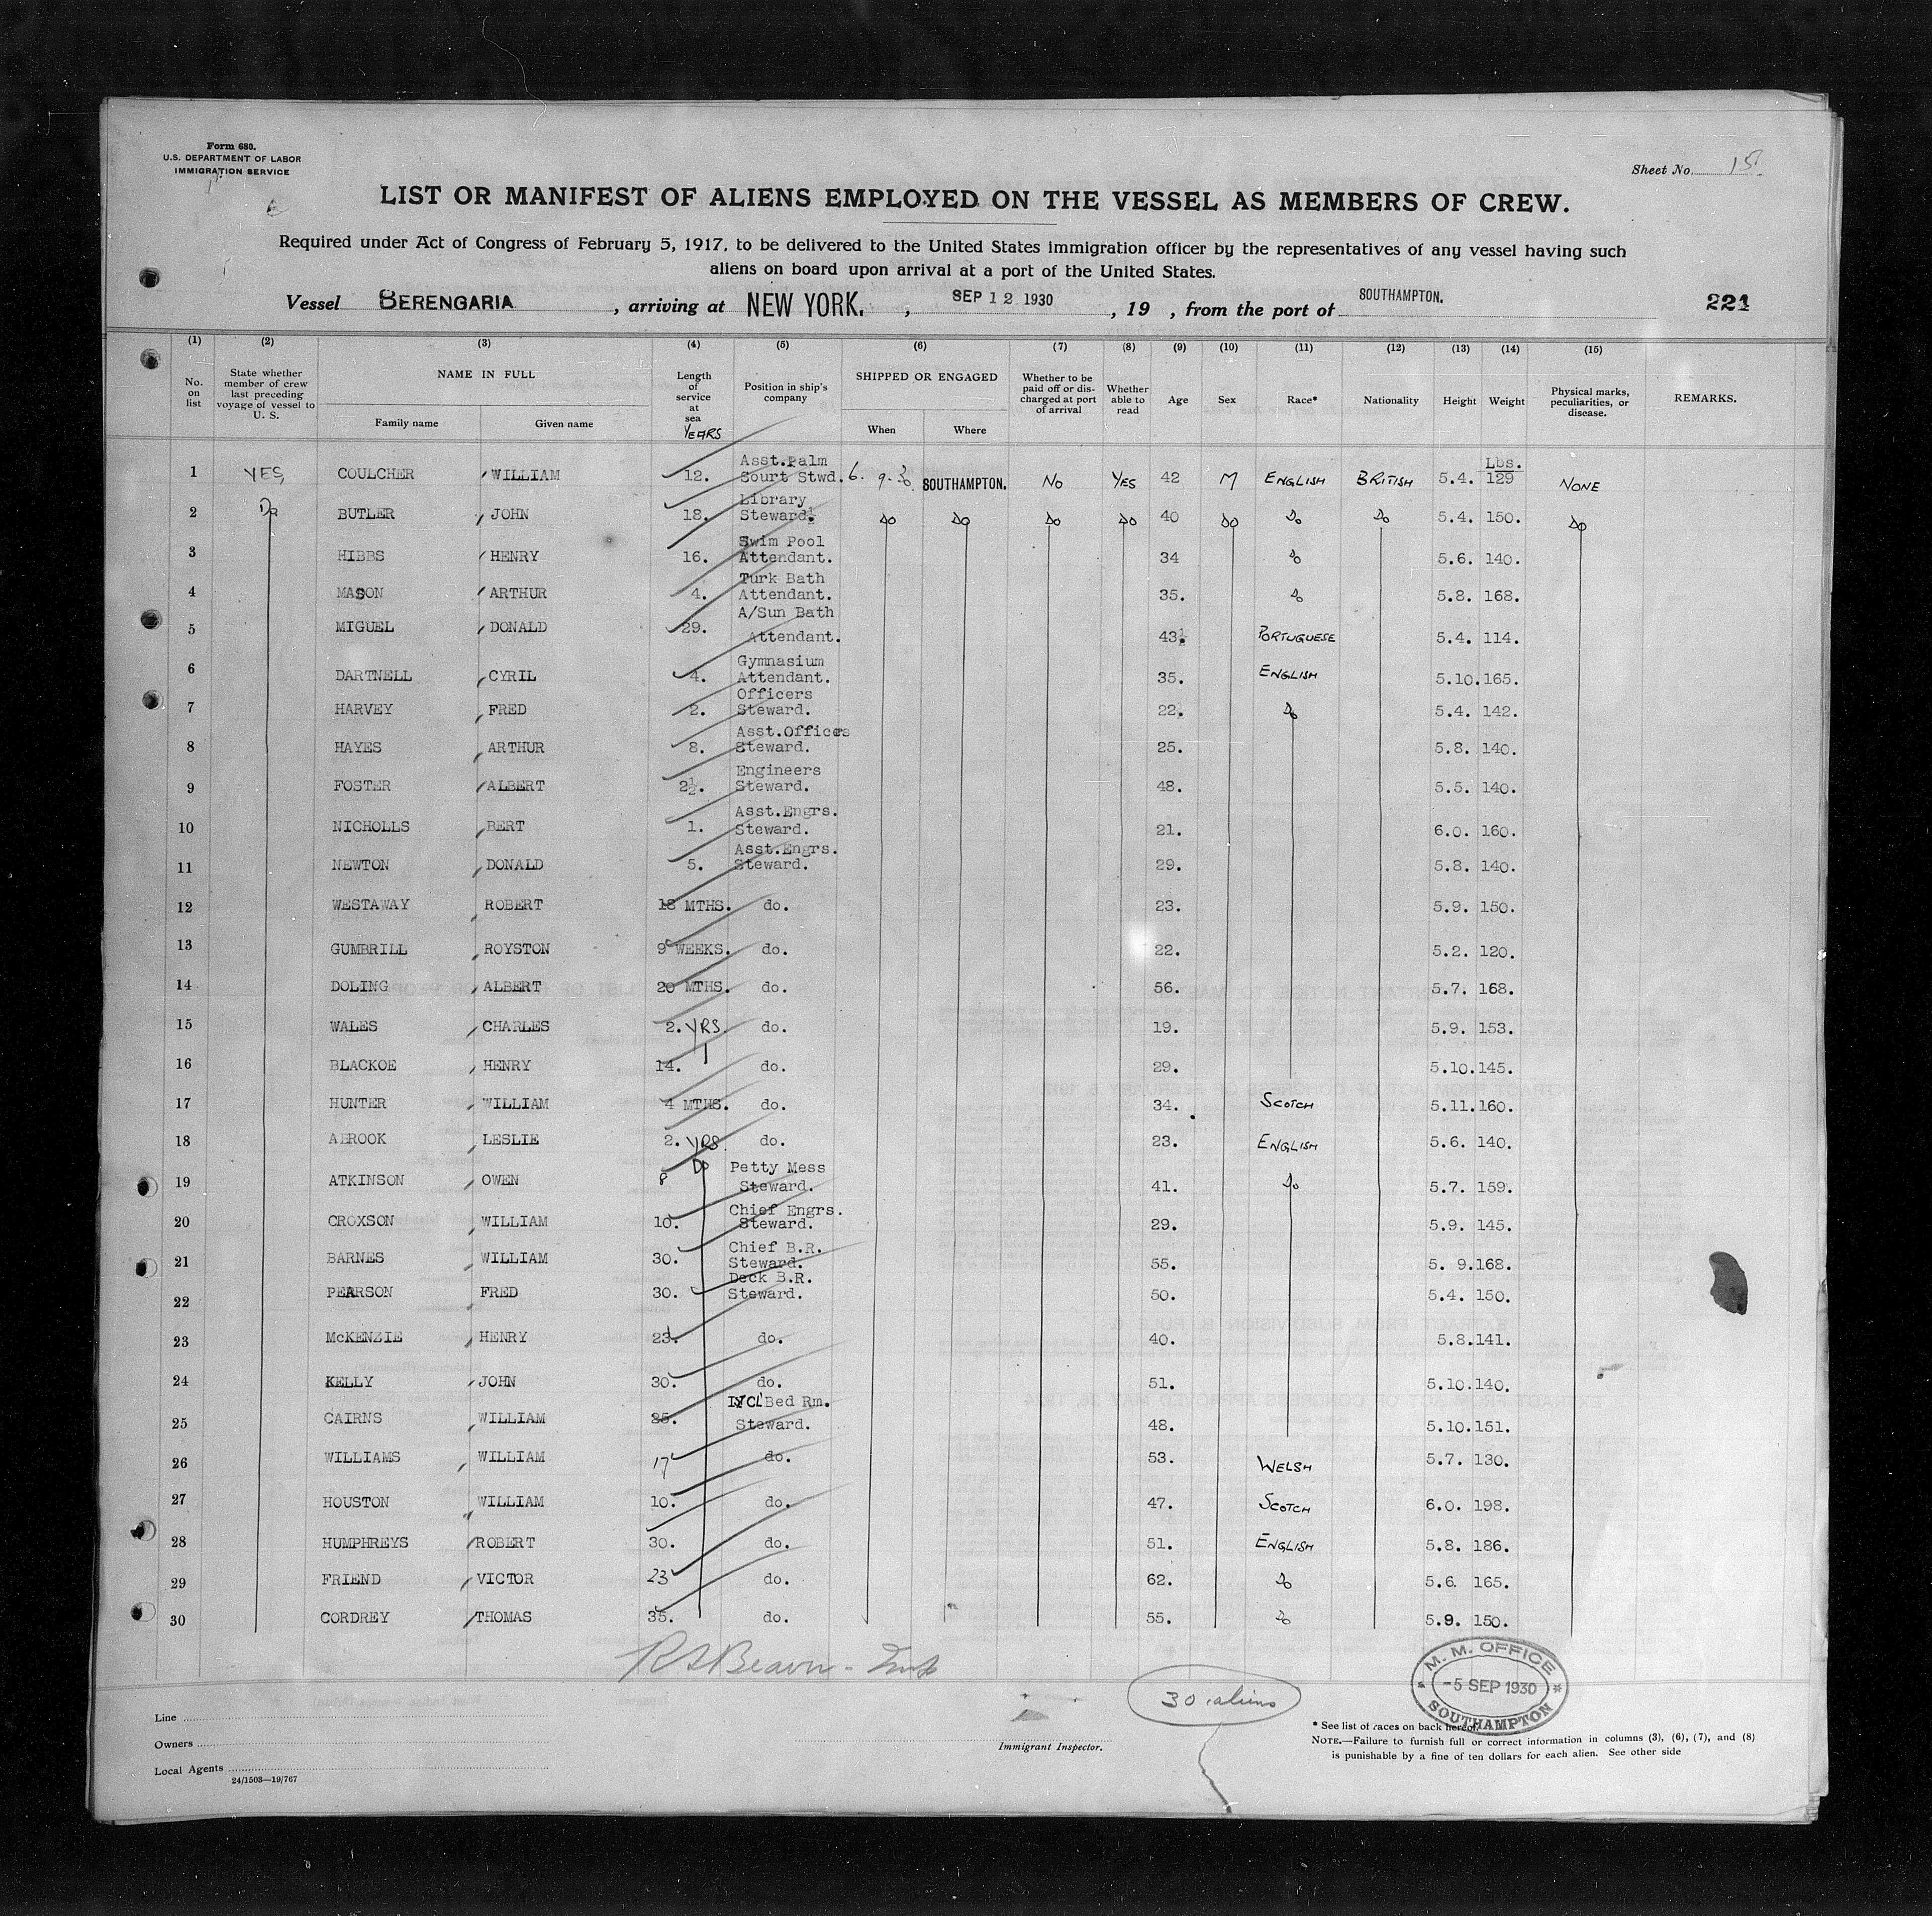 Form 680.
U.S. DEPARTMENT OF LABOR
IMMIGRATION SERVICE
Sheet No. 15
LIST OR MANIFEST OF ALIENS EMPLOYED ON THE VESSEL AS MEMBERS OF CREW.
Required under Act of Congress of February 5, 1917, to be delivered to the United States immigration officer by the representatives of any vessel having such
aliens on board upon arrival at a port of the United States.
Vessel BERENGARIA, arriving at NEW YORK., SEP 12 1930, 19 , from the port of SOUTHAMPTON. 221
(1) (2) (3) (4) (5) (6) (7) (8) (9) (10) (11) (12) (13) (14) (15)
No. on list | State whether member of crew last preceding voyage of vessel to U. S. | NAME IN FULL Family name Given name | Length of service at sea YEARS | Position in ship's company | SHIPPED OR ENGAGED When Where | Whether to be paid off or discharged at port of arrival | Whether able to read | Age | Sex | Race* | Nationality | Height | Weight | Physical marks, peculiarities, or disease. | REMARKS.
1 YES COULCHER WILLIAM 12. Asst.Palm Court Stwd. 6.9.30 SOUTHAMPTON. NO YES 42 M ENGLISH BRITISH 5.4. Lbs. 129 NONE
2 Do BUTLER JOHN 18. Library Steward. Do Do Do Do 40 Do Do Do 5.4. 150. Do
3 HIBBS HENRY 16. Swim Pool Attendant. 34 Do 5.6. 140.
4 MASON ARTHUR 4. Turk Bath Attendant. 35. Do 5.8. 168.
5 MIGUEL DONALD 29. A/Sun Bath Attendant. 43½ PORTUGUESE 5.4. 114.
6 DARTNELL CYRIL 4. Gymnasium Attendant. 35. ENGLISH 5.10. 165.
7 HARVEY FRED 2. Officers Steward. 22. Do 5.4. 142.
8 HAYES ARTHUR 8. Asst.Officers Steward. 25. 5.8. 140.
9 FOSTER ALBERT 2½. Engineers Steward. 48. 5.5. 140.
10 NICHOLLS BERT 1. Asst.Engrs. Steward. 21. 6.0. 160.
11 NEWTON DONALD 5. Asst.Engrs. Steward. 29. 5.8. 140.
12 WESTAWAY ROBERT 18 MTHS. do. 23. 5.9. 150.
13 GUMBRILL ROYSTON 9 WEEKS. do. 22. 5.2. 120.
14 DOLING ALBERT 20 MTHS. do. 56. 5.7. 168.
15 WALES CHARLES 2. YRS. do. 19. 5.9. 153.
16 BLACKOE HENRY 14. do. 29. 5.10. 145.
17 HUNTER WILLIAM 4 MTHS. do. 34. SCOTCH 5.11. 160.
18 ABROOK LESLIE 2. YRS do. 23. ENGLISH 5.6. 140.
19 ATKINSON OWEN 8 Do Petty Mess Steward. 41. Do 5.7. 159.
20 CROXSON WILLIAM 10. Chief Engrs. Steward. 29. 5.9. 145.
21 BARNES WILLIAM 30. Chief B.R. Steward. 55. 5. 9. 168.
22 PEARSON FRED 30. Deck B.R. Steward. 50. 5.4. 150.
23 McKENZIE HENRY 23. do. 40. 5.8. 141.
24 KELLY JOHN 30. do. 51. 5.10. 140.
25 CAIRNS WILLIAM 35. Cl Bed Rm. Steward. 48. 5.10. 151.
26 WILLIAMS WILLIAM 17 do. 53. WELSH 5.7. 130.
27 HOUSTON WILLIAM 10. do. 47. SCOTCH 6.0. 198.
28 HUMPHREYS ROBERT 30. do. 51. ENGLISH 5.8. 186.
29 FRIEND VICTOR 23 do. 62. Do 5.6. 165.
30 CORDREY THOMAS 35. do. 55. Do 5.9. 150.
30 aliens
M. M. OFFICE
-5 SEP 1930
SOUTHAMPTON
Line
Owners
Local Agents
24/1503—19/767
Immigrant Inspector.
* See list of races on back hereof.
NOTE.—Failure to furnish full or correct information in columns (3), (6), (7), and (8)
is punishable by a fine of ten dollars for each alien. See other side